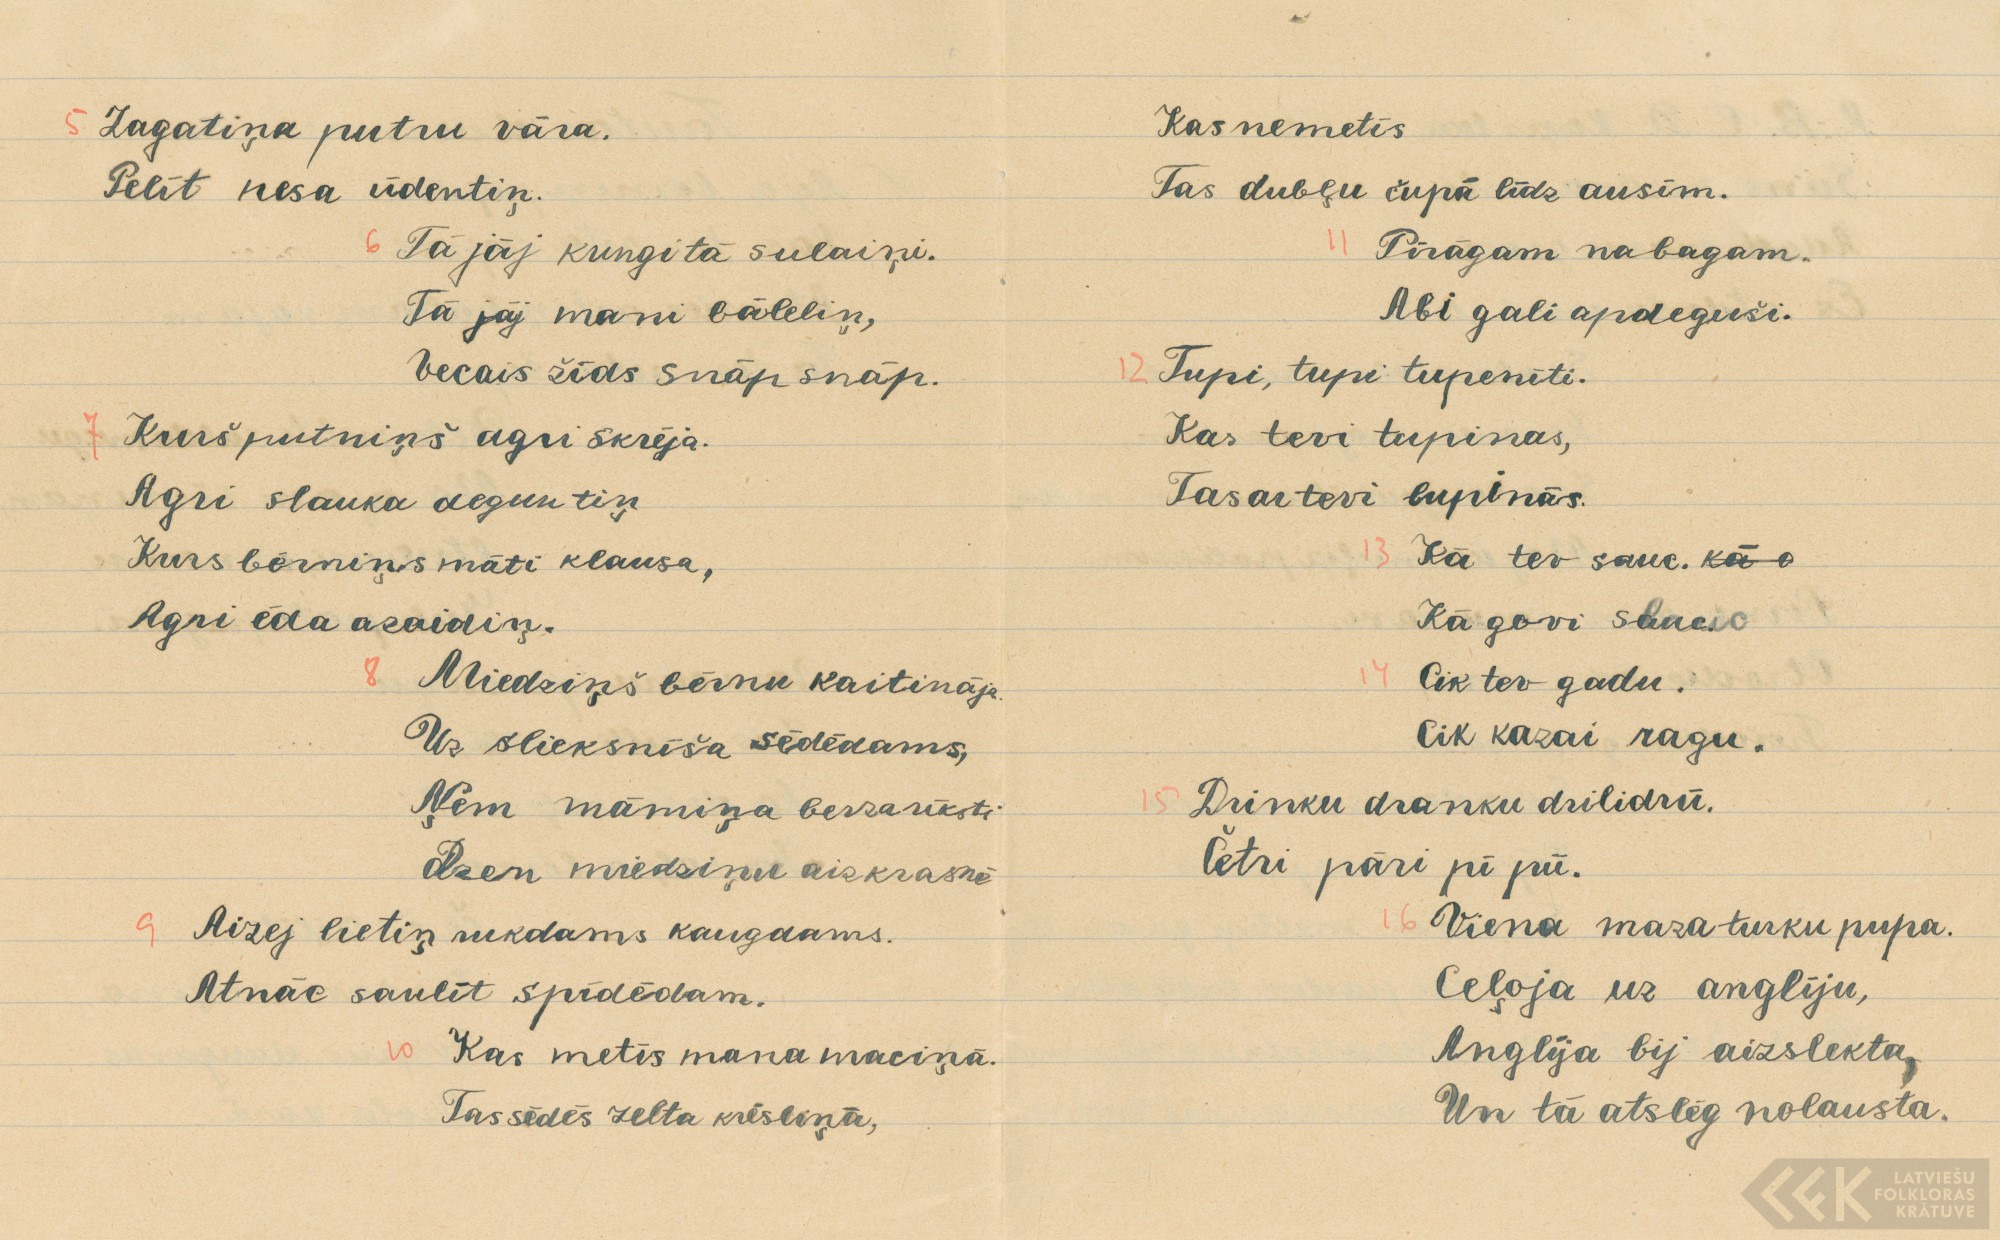 5 Zagatiņa putru vāra.
Pelīt nesa ūdentiņ.
6 Tā jāj kungi tā sulaiņi.
Tā jāj mani bāleliņ,
Vecais žīds snāp snāp.
7 Kurš putniņš agri skrēja.
Agri slauka deguntiņ
Kurs bērniņs māti klausa,
Agri ēda azaidiņ.
8 Miedziņš bērnu kaitināja.
Uz slieksnīša sēdēdams,
Ņem māmiņa berza rīksti
Dzen miedziņu aizkrasnē
9 Aizej lietiņ rukdams kaugdams.
Atnāc saulīt spīdēdam.
10 Kas metīs mana maciņā.
Tas sēdēs zelta krēsliņā,
Kas nemetīs
Tas dubļu čupā līdz ausīm.
11 Pīrāgam nabagam.
Abi gali apdeguši.
12 Tupi, tupi tupenīti.
Kas tevi tupinas,
Tas ar tevi lupinās.
13 Kā tev sauc. kā o
Kā govi slauc.
14 Cik tev gadu.
Cik kazai ragu.
15 Drinku dranku drilidrū.
Četri pāri pī pū.
16 Viena maza turku pupa.
Ceļoja uz anglīju,
Anglīja bij aizslekta,
Un tā atslēg nolausta.
LATVIEŠU
FOLKLORAS
KRĀTUVE